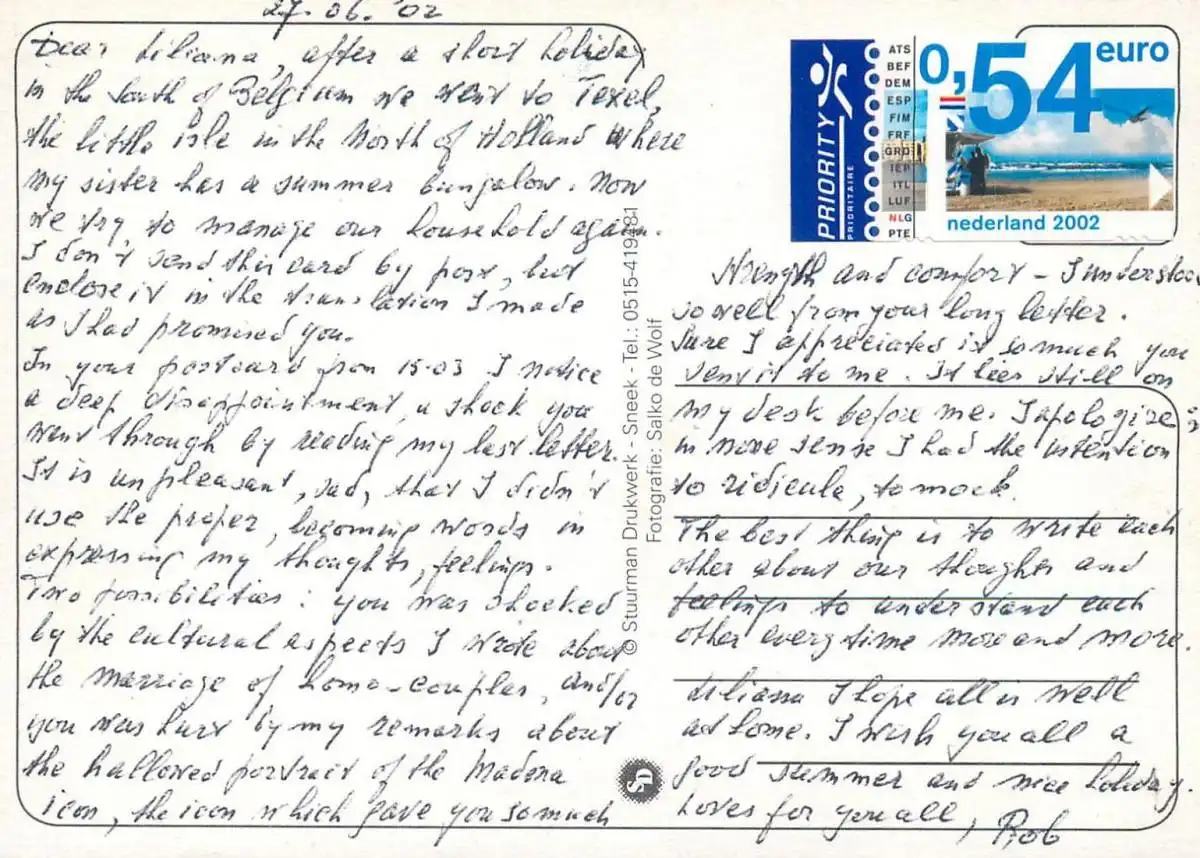 27.06.'02
Dear Liliana, after a short holiday
in the South of Belgium we went to Texel,
the little isle in the North of Holland where
my sister has a summer bungalow. Now
we try to manage our household again.
I don't send this card by post, but
enclose it in the translation I made
as I had promised you.
In your postcard from 15-03 I notice
a deep disappointment, a shock you
went through by reading my last letter.
It is unpleasant, sad, that I didn't
use the proper, becoming words in
expressing my thoughts, feelings.
Two possibilities: you was shocked
by the cultural aspects I wrote about
the marriage of homo-couples, and/or
you was hurt by my remarks about
the hallowed portrait of the Madona
icon, the icon which gave you so much
© Stuurman Drukwerk - Sneek - Tel.: 0515-419481
Fotografie: Salko de Wolf
SD
PRIORITY
PRIORITAIRE
ATS
BEF
DEM
ESP
FIM
FRF
GRD
IEP
ITL
LUF
NLG
PTE
0,54 euro
nederland 2002
strength and comfort - I understood
so well from your long letter.
Sure I appreciated it so much you
sent it to me. It lies still on
my desk before me. I apologize;
in none sense I had the intention
to ridicule, to mock.
The best thing is to write each
other about our thoughts and
feelings to understand each
other every time more and more.
Liliana I hope all is well
at home. I wish you all a
good summer and nice holiday.
Loves for you all, Rob